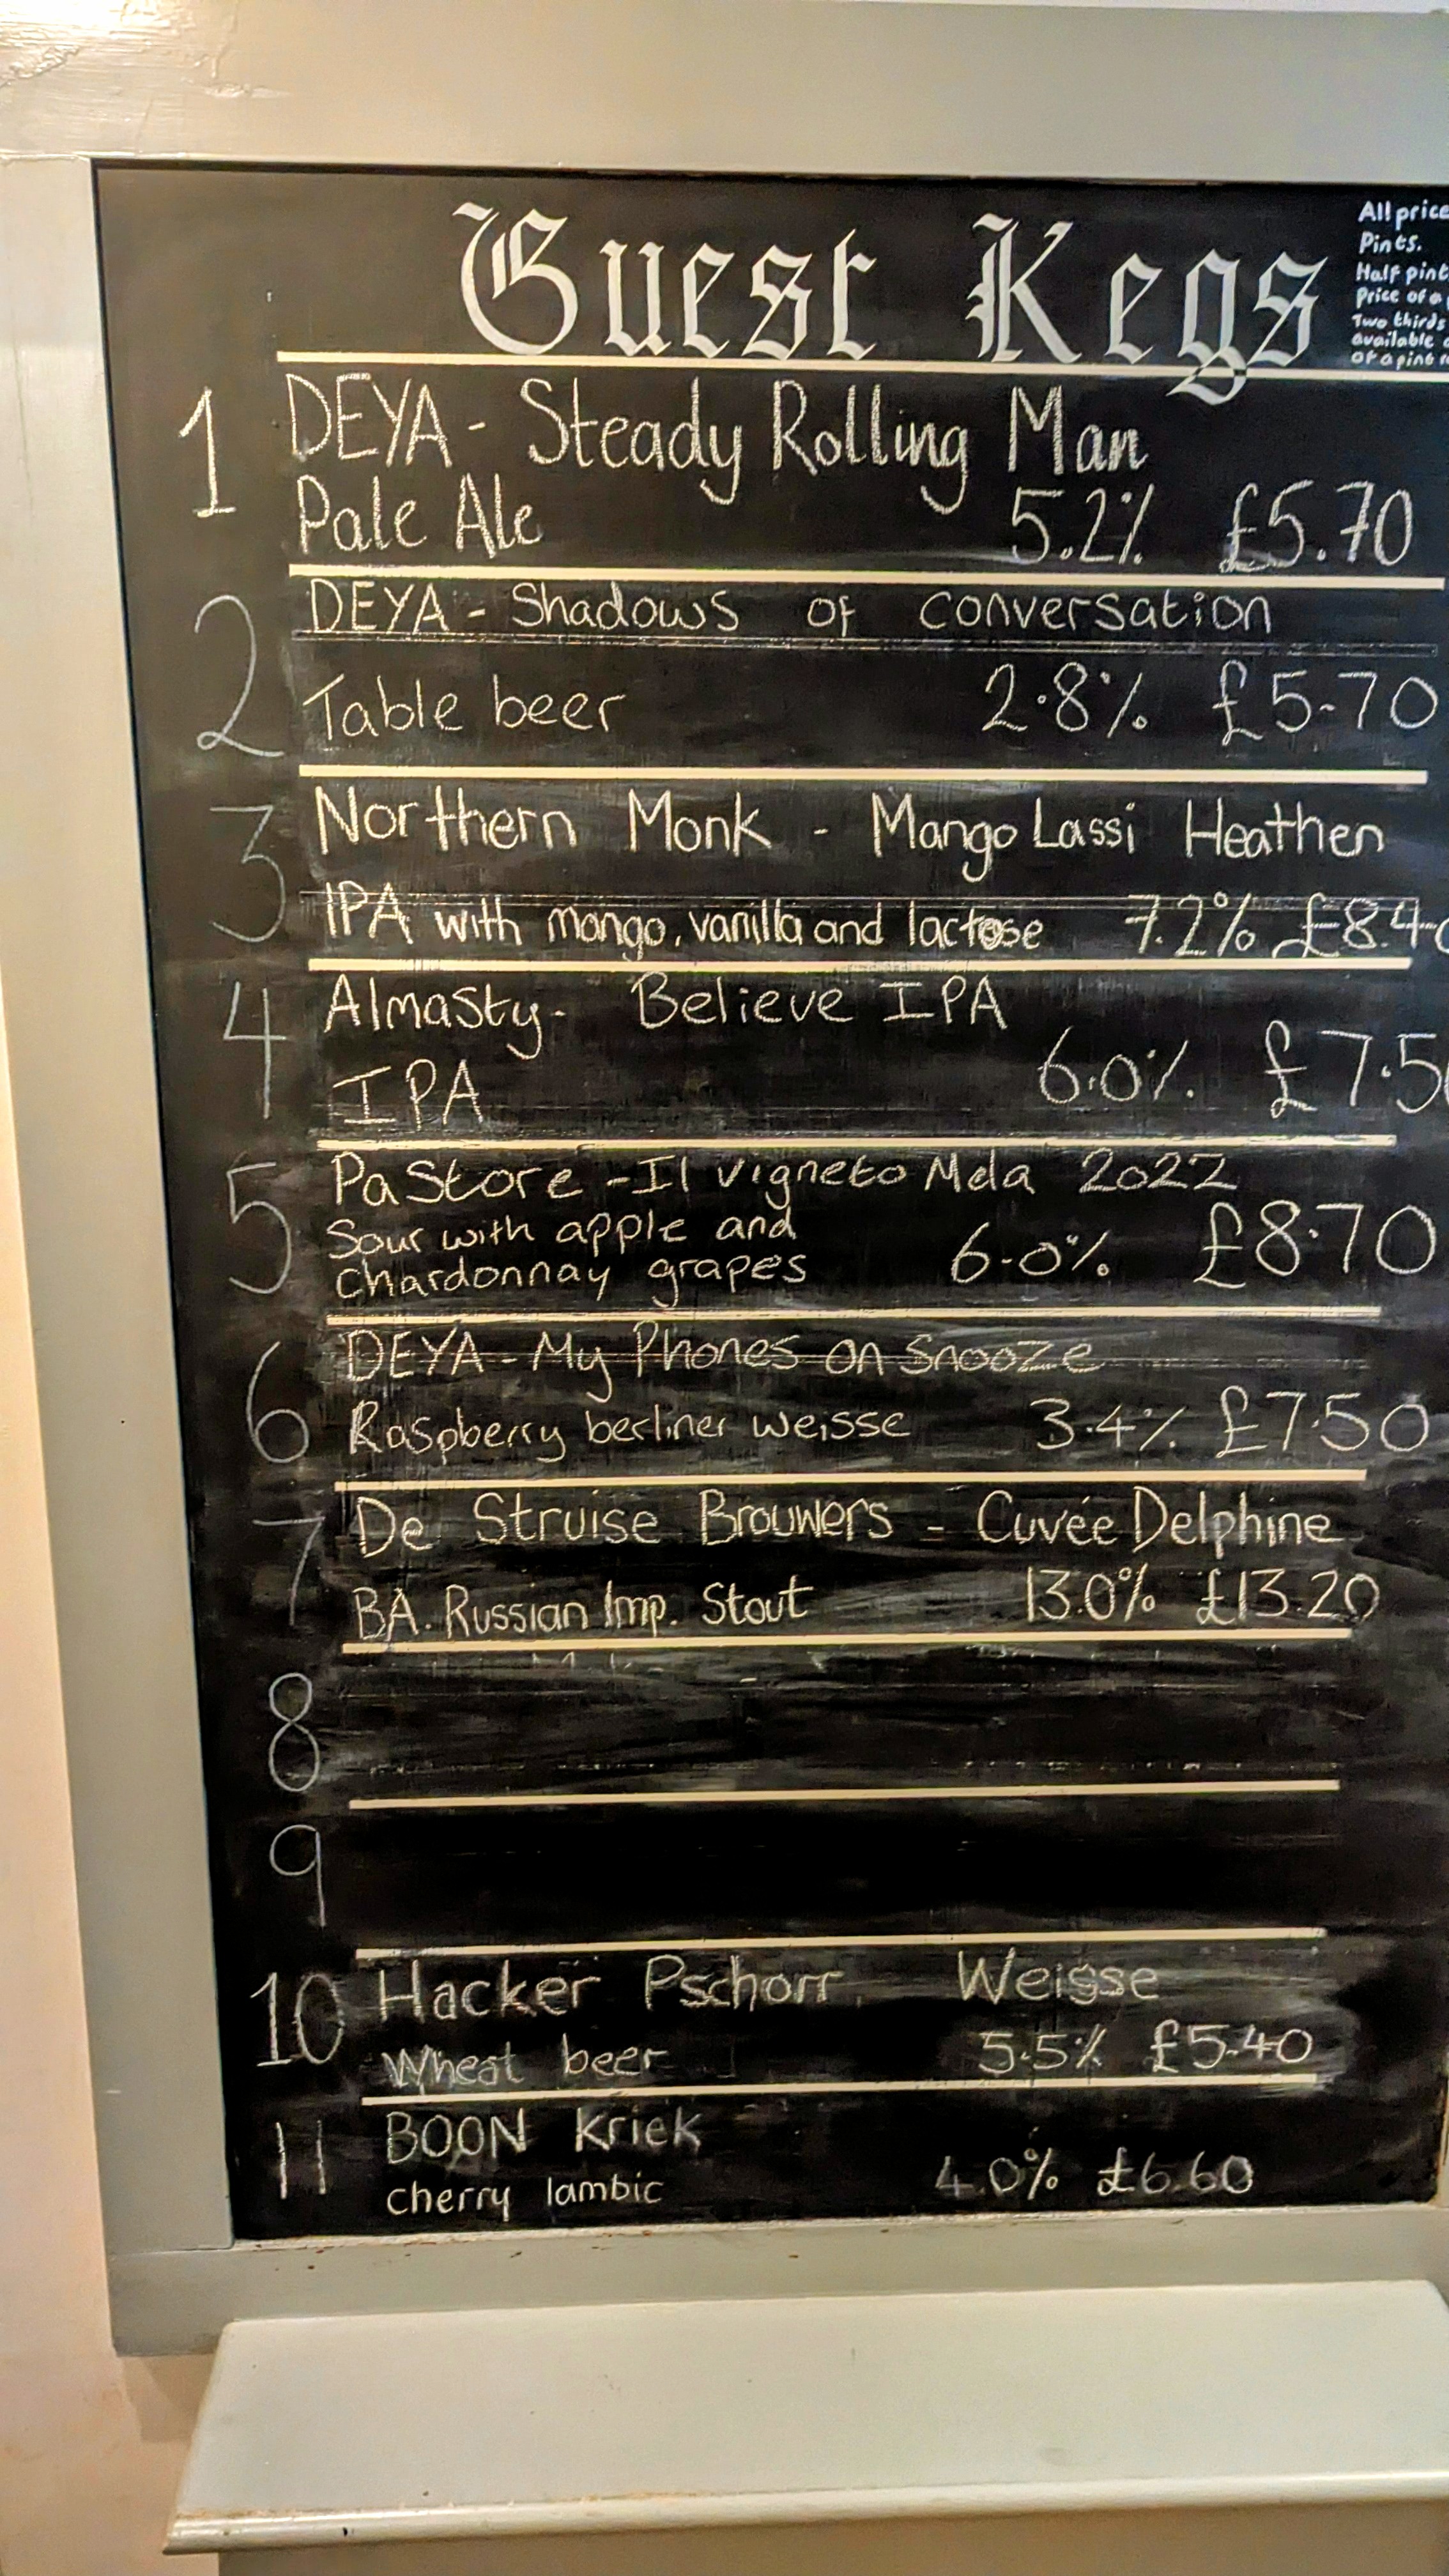 Guest Kegs
All price
Pints.
Half pint
Price of a
Two thirds
available
of a pint
1 DEYA - Steady Rolling Man
Pale Ale 5.2% £5.70
2 DEYA - Shadows of conversation
Table beer 2.8% £5.70
3 Northern Monk - Mango Lassi Heathen
IPA with mango, vanilla and lactose 7.2% £8.40
4 Almasty - Believe IPA
IPA 6.0% £7.50
5 Pastore - Il vigneto Mela 2022
Sour with apple and
chardonnay grapes 6.0% £8.70
6 DEYA - My Phones on Snooze
Raspberry berliner weisse 3.4% £7.50
7 De Struise Brouwers - Cuvée Delphine
BA. Russian Imp. Stout 13.0% £13.20
8
9
10 Hacker Pschorr Weisse
Wheat beer 5.5% £5.40
11 BOON Kriek
cherry lambic 4.0% £6.60